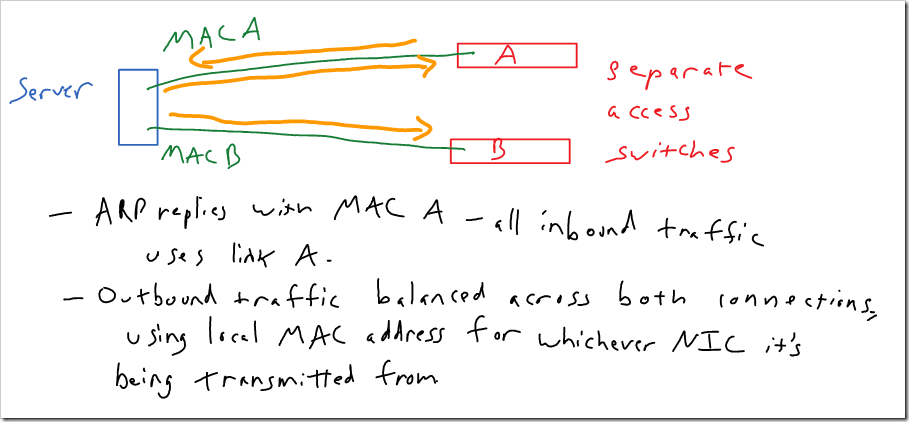 MAC A
A
Server
separate
access
switches
B
MAC B
- ARP replies with MAC A - all inbound traffic
uses link A.
- Outbound traffic balanced across both connections,
using local MAC address for whichever NIC it's
being transmitted from